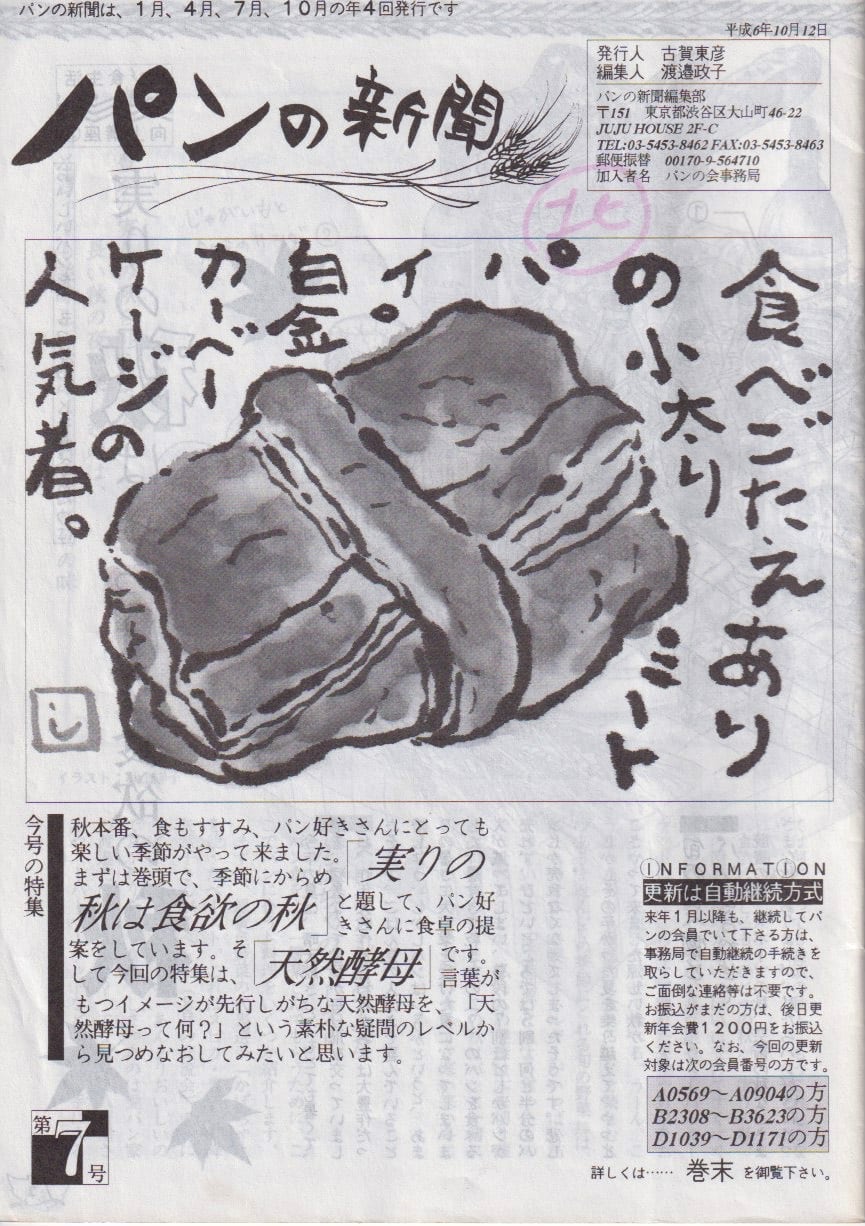 パンの新聞は、1月、4月、7月、10月の年4回発行です
平成6年10月12日
パンの新聞
発行人 古賀東彦
編集人 渡邉政子
パンの新聞編集部
〒151 東京都渋谷区大山町46-22
JUJU HOUSE 2F-C
TEL:03-5453-8462 FAX:03-5453-8463
郵便振替 00170-9-564710
加入者名 パンの会事務局
北
食べごたえあり
の小太り
ミート
パ
イ。
白金
カーベー
ケージの
人気者。
し
今号の特集
秋本番、食もすすみ、パン好きさんにとっても
楽しい季節がやって来ました。
まずは巻頭で、季節にからめ「実りの
秋は食欲の秋」と題して、パン好
きさんに食卓の提
案をしています。そ
して今回の特集は、「天然酵母」です。
言葉が
もつイメージが先行しがちな天然酵母を、「天
然酵母って何?」という素朴な疑問のレベルか
ら見つめなおしてみたいと思います。
第7号
INFORMATION
更新は自動継続方式
来年1月以降も、継続してパ
ンの会員でいて下さる方は、
事務局で自動継続の手続きを
取らしていただきますので、
ご面倒な連絡等は不要です。
お振込がまだの方は、後日更
新年会費1200円をお振込
ください。なお、今回の更新
対象は次の会員番号の方です。
A0569〜A0904の方
B2308〜B3623の方
D1039〜D1171の方
詳しくは…… 巻末 を御覧下さい。